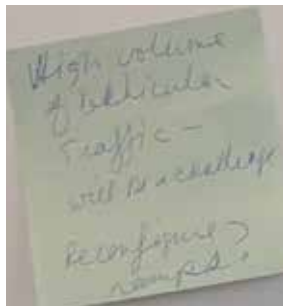 High volume
of vehicular
Traffic –
will be a challenge
Reconfigure
ramps?